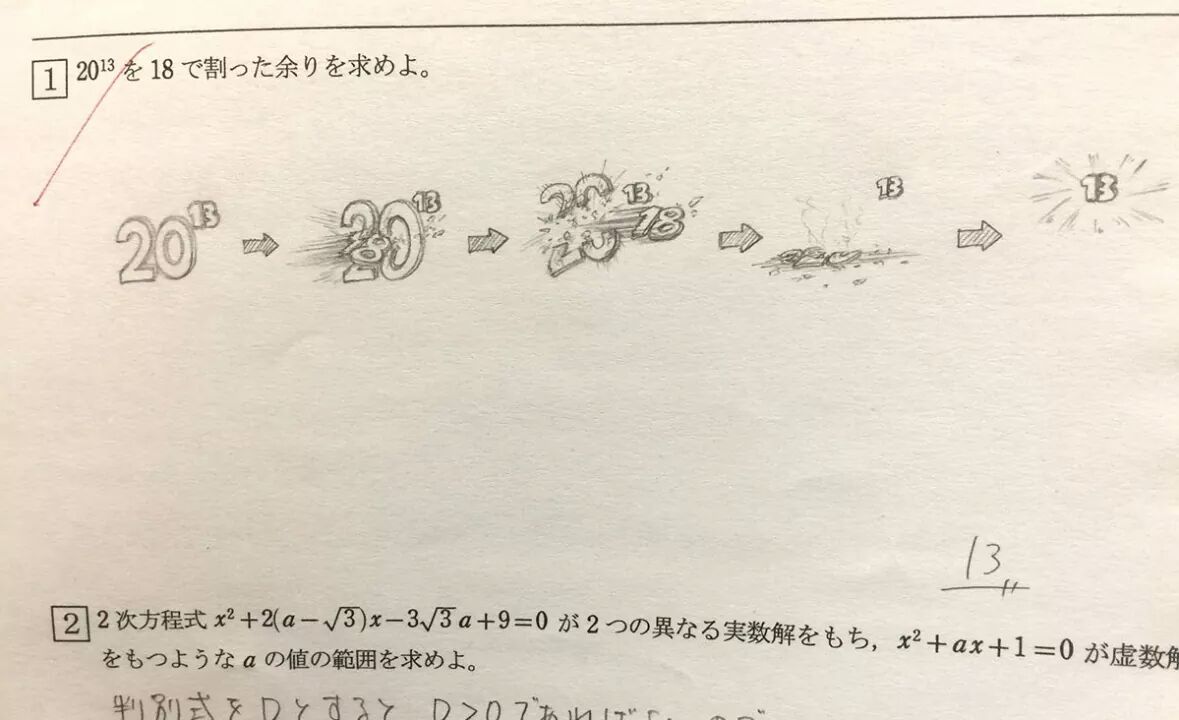 1 20¹³ を 18 で割った余りを求めよ。
20¹³ ⇨ 20¹³ 18 ⇨ 20 13 18 ⇨ 13 ⇨ 13
13
2 2 次方程式 x²+2(a−√3)x−3√3a+9=0 が 2 つの異なる実数解をもち，x²+ax+1=0 が虚数解
をもつような a の値の範囲を求めよ。
判別式を Dとすると D>0であれば